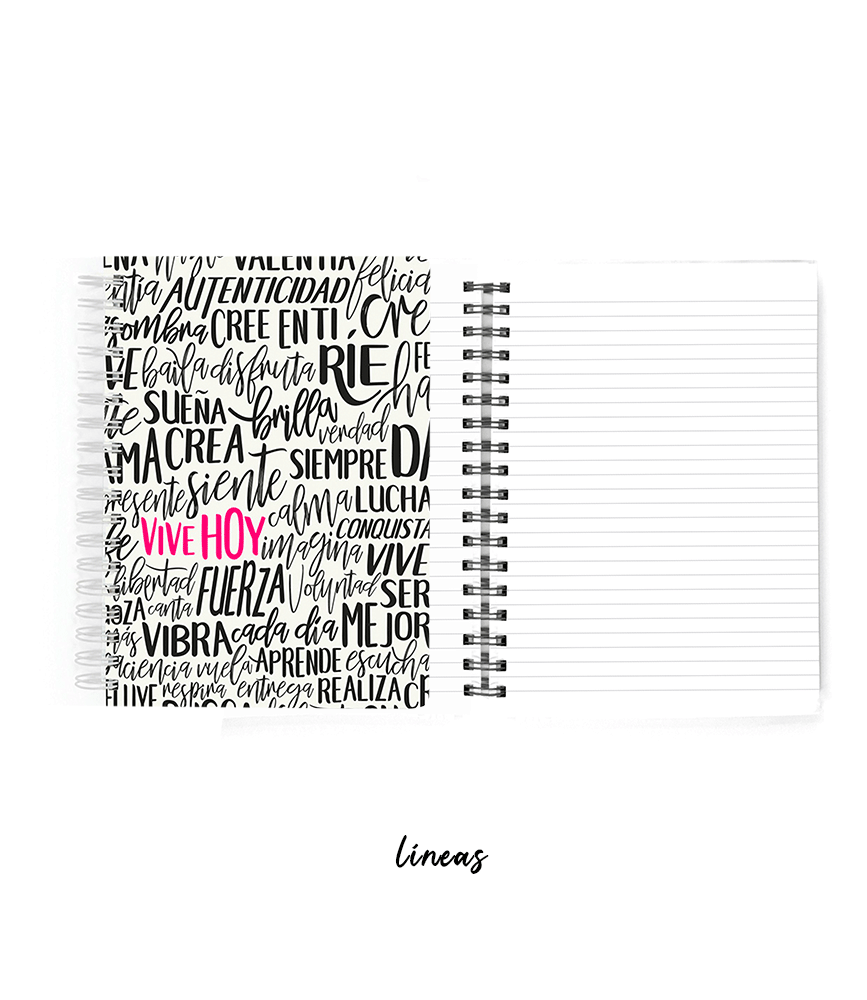 VALENTÍA
AUTENTICIDAD felicid
CREE EN TI cre
baila disfruta RÍE
SUEÑA brilla verdad
AMA CREA SIEMPRE
siente calma LUCHA
VIVE HOY imagina CONQUISTA
libertad FUERZA Voluntad VIVE
canta SER
VIBRA cada día MEJOR
vuela APRENDE escucha
respira entrega REALIZA
líneas